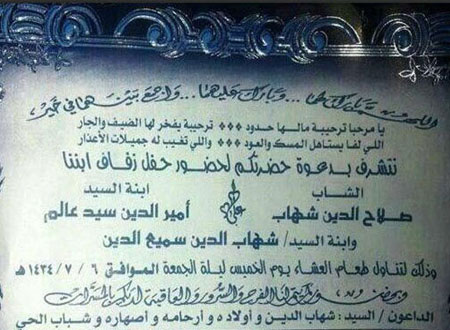 اللهم بارك لهما ... وبارك عليهما ... واجمع بينهما في خير
يا مرحبا ترحيبة مالها حدود ◊◊◊ ترحيبة يفخر لها الضيف والجار
اللي لفا يستاهل المسك والعود ◊◊◊ واللي تغيب له جميلات الأعذار
نتشرف بدعوة حضرتكم لحضور حفل زفاف ابننا
الشاب
ابنة السيد
صلاح الدين شهاب
على
أمير الدين سيد عالم
وابنة السيد/ شهاب الدين سميع الدين
وذلك لتناول طعام العشاء يوم الخميس ليلة الجمعة الموافق ٦ / ٧ / ١٤٣٤ هـ
وبحضوركم يتم لنا الفرح والسرور والعاقبة لديكم بالمسرات
الداعون / السيد: شهاب الدين و أولاده و أرحامه و أصهاره و شباب الحي